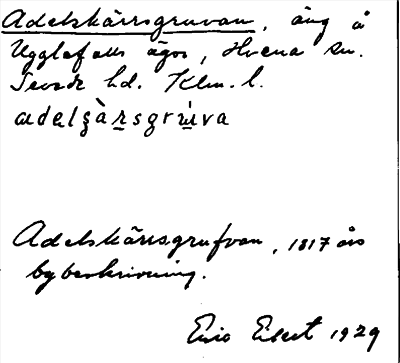 Adelskärrsgruvan, äng å
Ugglefalls ägor, Hvena sn.
Sevede hd. Klm. l.
adelgàrsgrùva
Adelskärrsgrufvan, 1817 års
bybeskrivning.
Eric Elert 1929